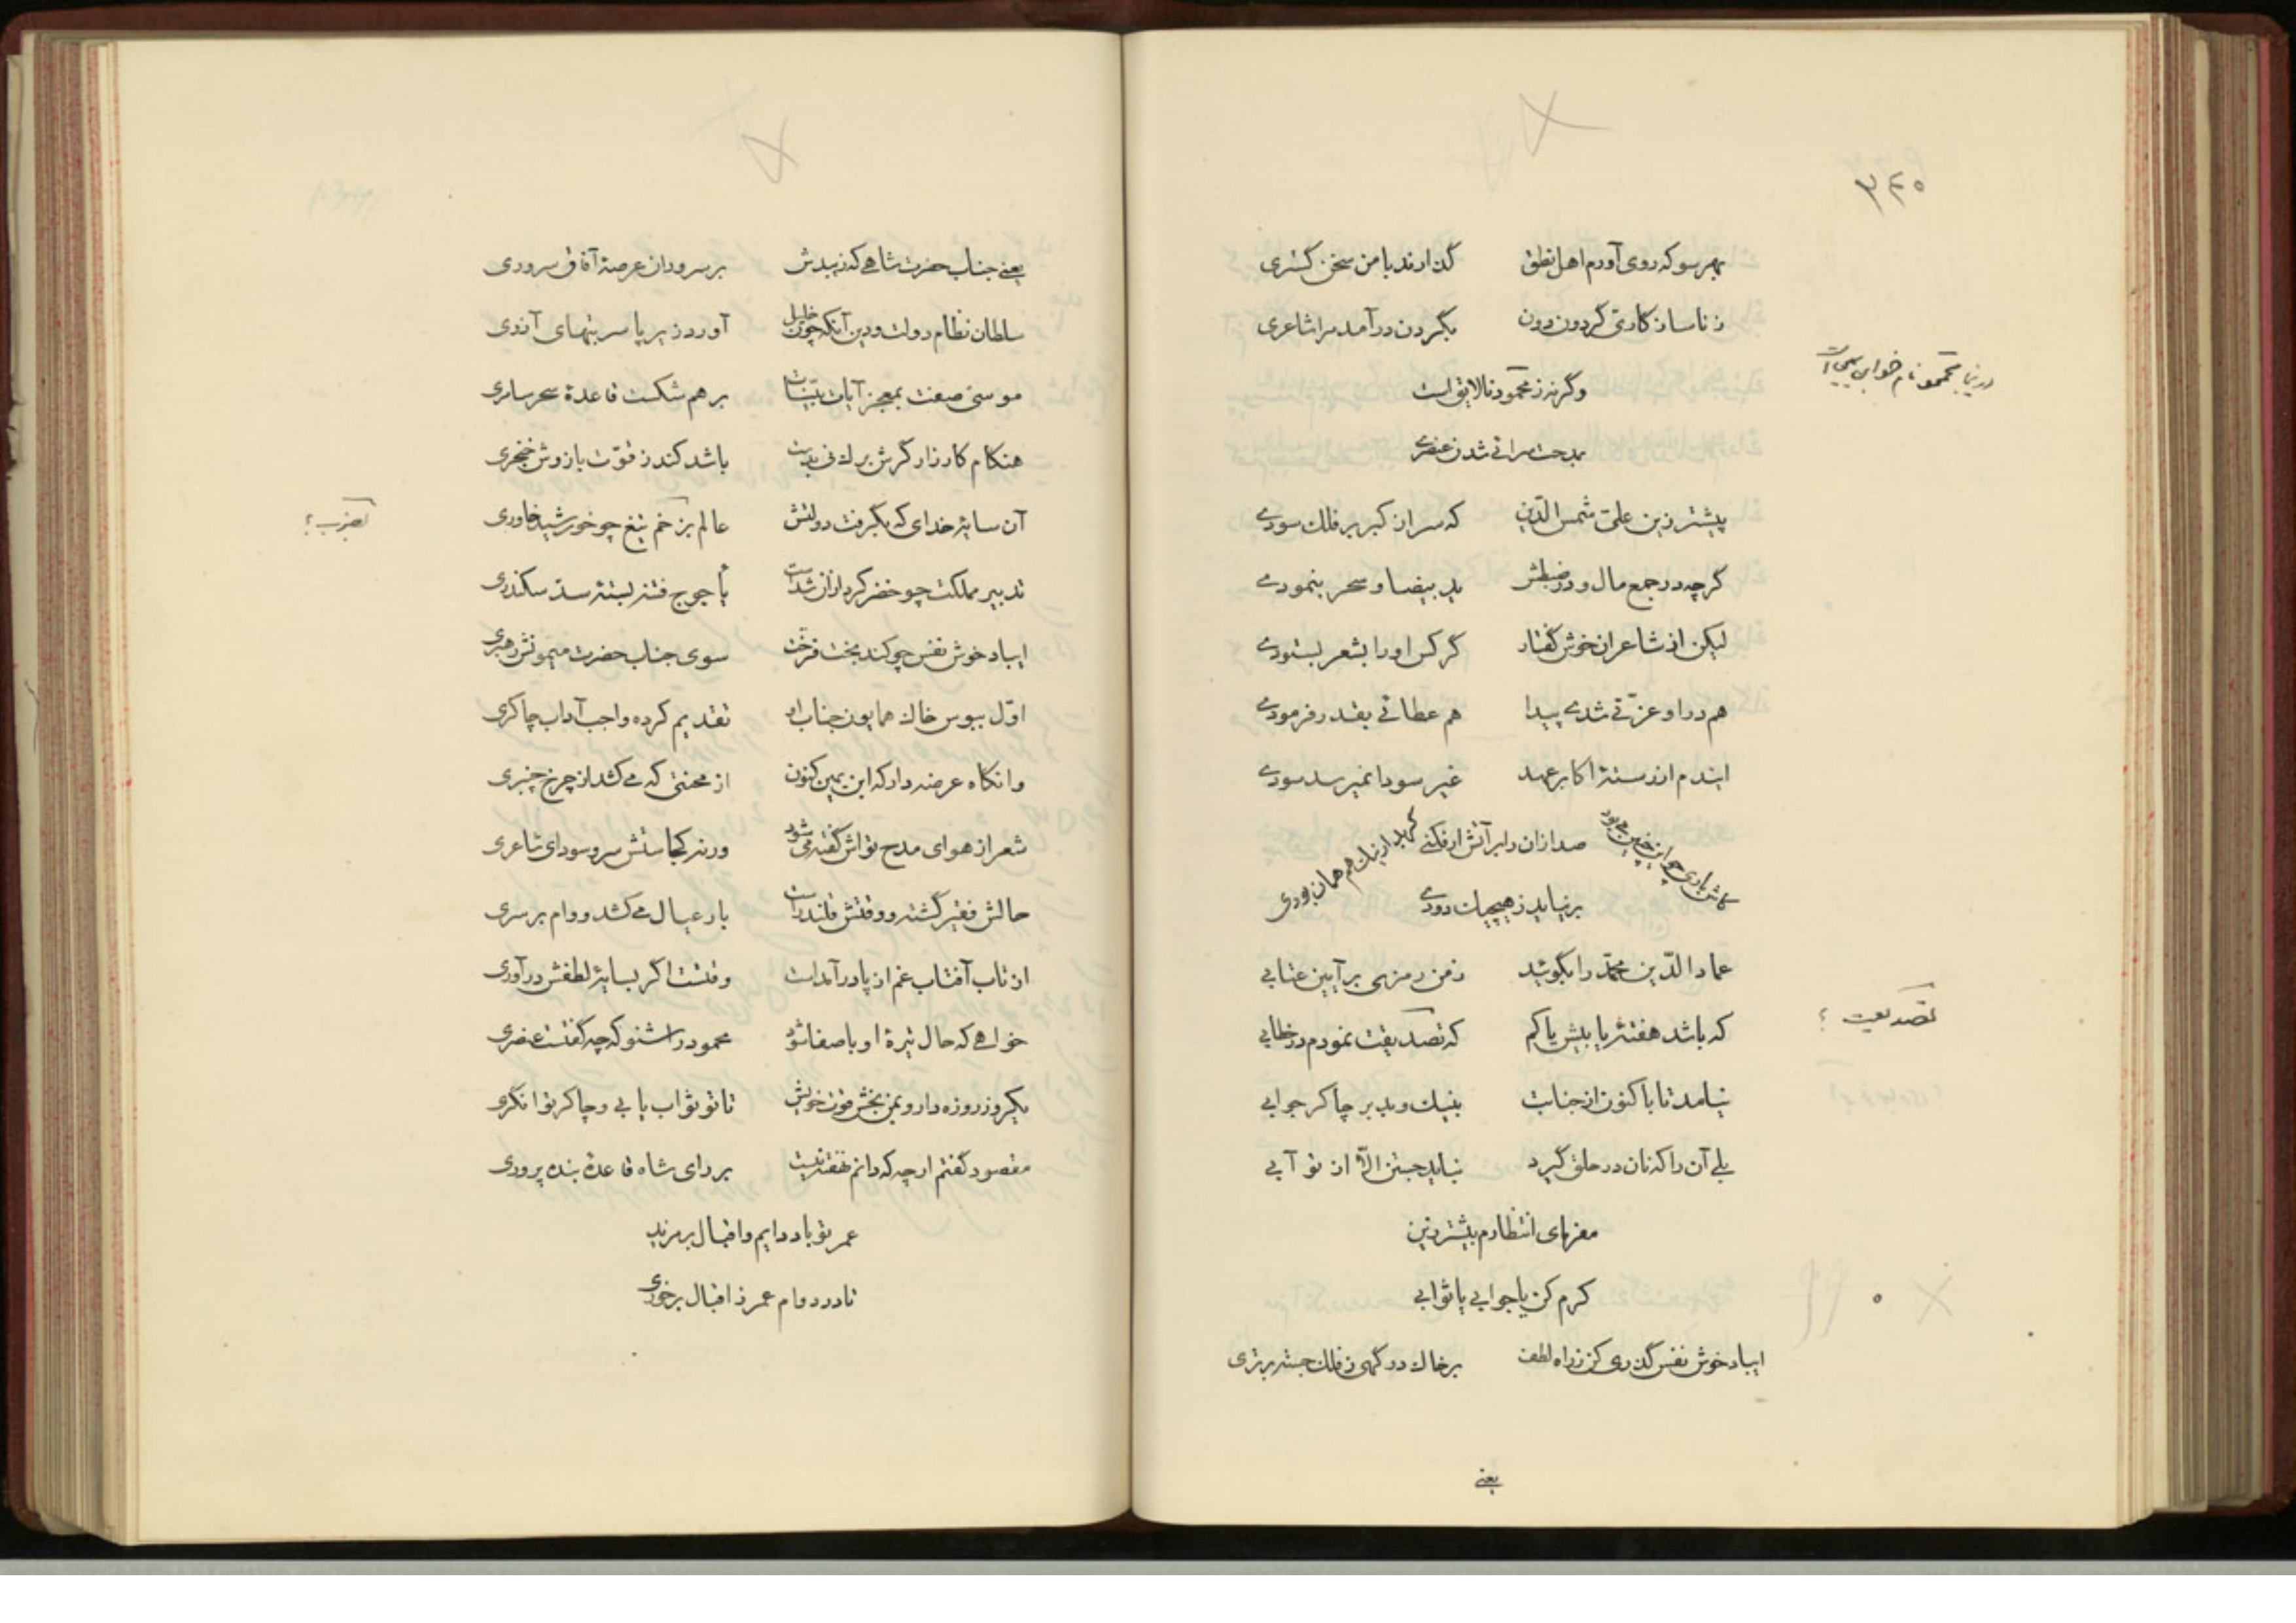 ۳۴۵
بهر سو که روی آورم اهل نطق گذارند با من سخن گستری
ز ناسازکاری گردون دون بگردن درآمد مرا شاعری
وگرنه ز محمود نالایق است
بمدحت سرائی شدن عنصری
پیشتر زین علی شمس الدین که سر از کبر بر فلک سودی
گرچه در جمع مال و در ضبطش ید بیضا و سحر بنمودی
لیکن از شاعران خوش گفتار گر کس او را بشعر بستودی
هم در او عزّتی شدی پیدا هم عطائی بقدر فرمودی
ایندم از دستهٔ اکابر عهد غیر سودا نمیرسد سودی
صد ازان را بر آتش ار فکنی
برنیاید ز هیچیک دودی
عماد الدّین محمّد را بگوئید ز من رمزی بر آیین عتابی
که باشد هفتهٔ یا بیش یا کم که تصدیقت نمودم در خطابی
نیامد تا باکنون از جنابت بنیک و بد بر چاکر جوابی
بلی آن را که نان در حلق گیرد نباید جستن الّا از تو آبی
مفرمای انتظارم بیشتر زین
کرم کن یا جوابی یا ثوابی
ای باد خوش نفس گذری کن ز راه لطف بر خاک درگهی ز فلک جسته برتری
یعنی
یعنی جناب حضرت شاهی که زیبدش بر سروران عرصهٔ آفاق سروری
سلطان نظام دولت و دین آنکه چون خلیل آورد زیر پا سر بتهای آذری
موسی صفت بمعجز آیات بیّنات بر هم شکست قاعدهٔ سحر سامری
هنکام کارزار گرش برک نی بدست باشد کند ز قوّت بازوش خنجری
آن سایهٔ خدای که بگرفت دولتش عالم بزخم تیغ چو خورشید خاوری
تدبیر مملکت چو خضر کرد ازان شدست یأجوج فتنه بستهٔ سدّ سکندری
ای باد خوش نفس چو کند بخت فرّخت سوی جناب حضرت میمونش رهبری
اوّل ببوس خاک همایون جناب او تقدیم کرده واجب آداب چاکری
وانکاه عرضه دار که ابن یمین کنون از محنتی که می کشد از چرخ چنبری
شعر از هوای مدح تو اش گفته می شود ورنه کجاستش سر و سودای شاعری
حالش فقیر گشته و وقتش قلندرست بار عیال می کشد و وام بر سری
از تاب آفتاب غم از پا درآمدست وقتست اگر بسایهٔ لطفش درآوری
خواهی که حال تیرهٔ او با صفا شود محمود را شنو که چه گفتست عنصری
یکروز روزه دار و بمن بخش قوت خویش تا تو ثواب یابی و چاکر توانگری
مقصود گفتم ار چه که دانم نهفته نیست بر رای شاه قاعدهٔ بنده پروری
عمر تو باد دایم و اقبال بر مزید
تا در دوام عمر ز اقبال برخوری